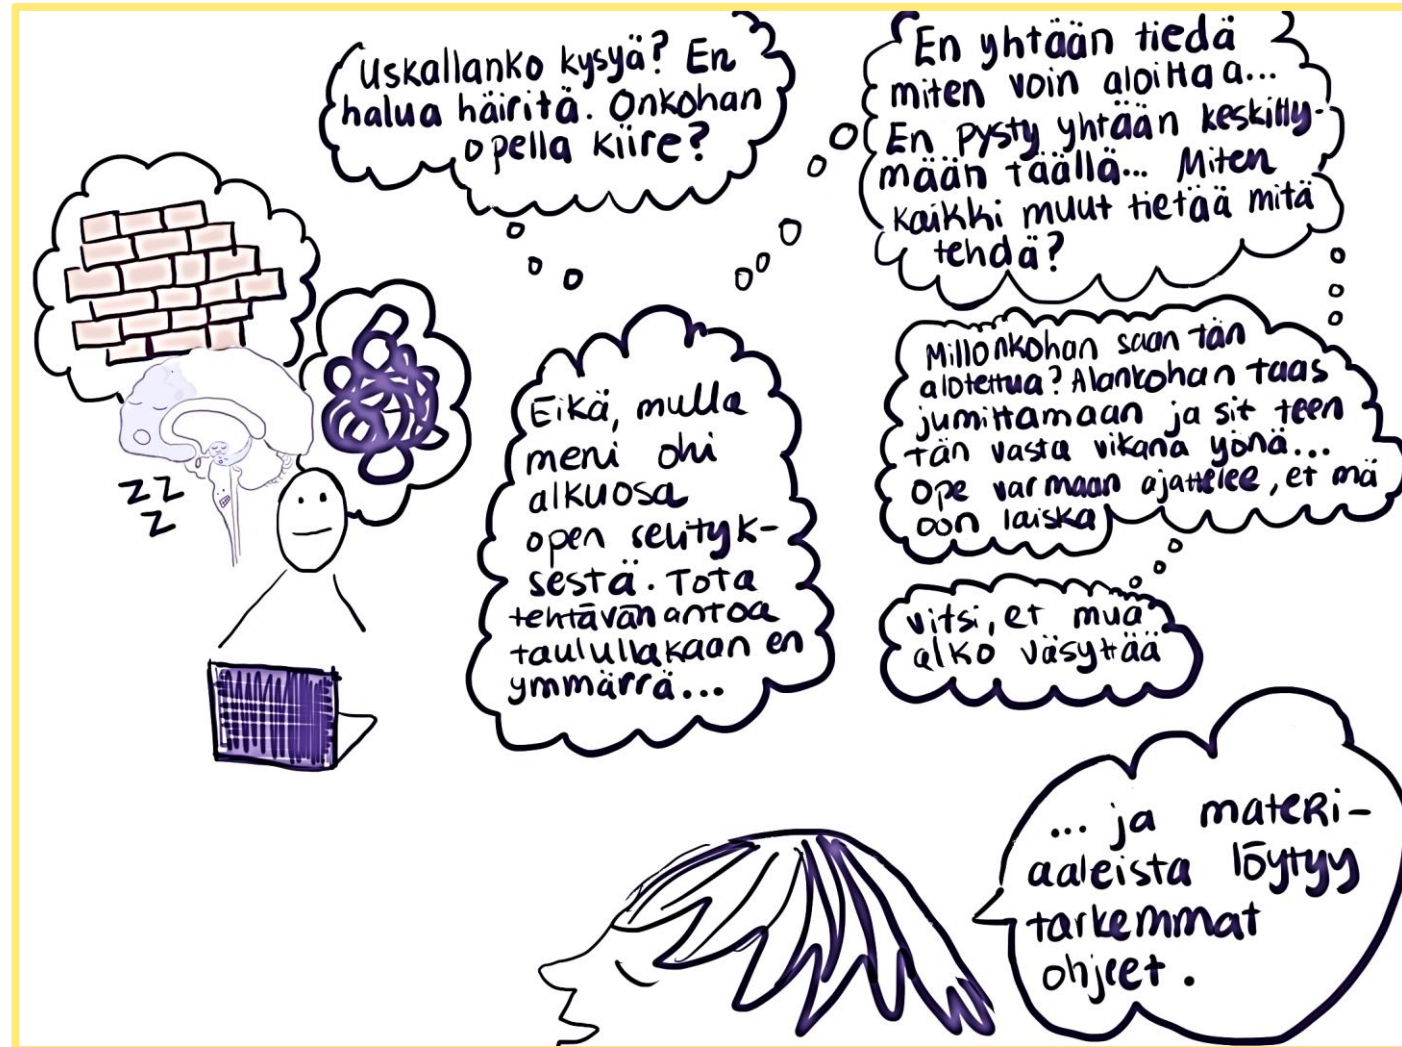 Uskallanko kysyä? En
halua häiritä. Onkohan
opella kiire?
En yhtään tiedä
miten voin aloittaa...
En pysty yhtään keskitty-
mään täällä... Miten
kaikki muut tietää mitä
tehdä?
Eikä, mulla
meni ohi
alkuosa
open selityk-
sestä. Tota
tehtävänantoa
taulullakaan en
ymmärrä...
Millonkohan saan tän
alotettua? Alankohan taas
jumittamaan ja sit teen
tän vasta vikana yönä...
Ope varmaan ajattelee, et mä
oon laiska
Vitsi, et mua
alko väsyttää
zz
z
... ja materi-
aaleista löytyy
tarkemmat
ohjeet.